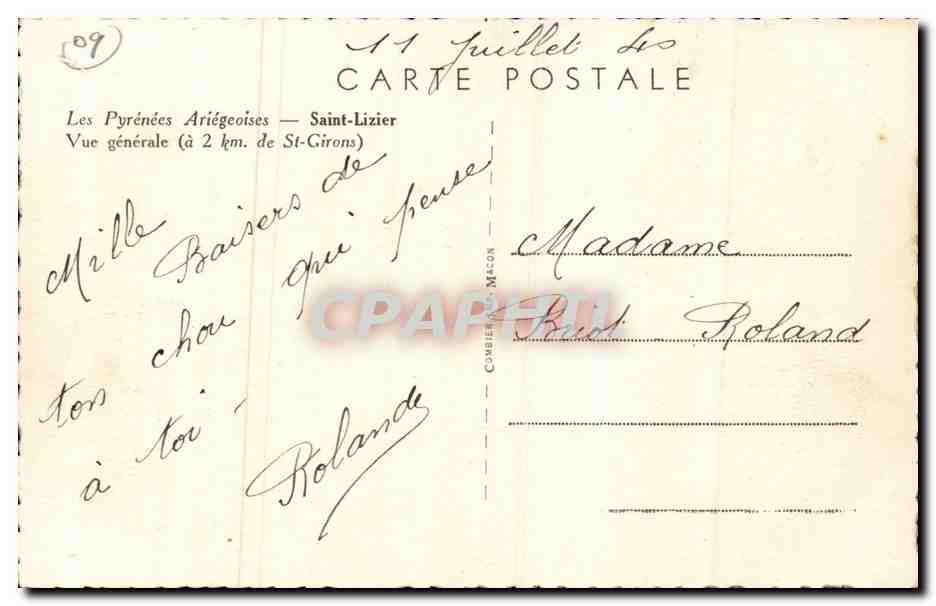 (09)
11 Juillet 40
CARTE POSTALE
Les Pyrénées Ariégeoises — Saint-Lizier
Vue générale (à 2 km. de St-Girons)
Mille Baisers de
ton chou qui pense
à toi -
Rolande
COMBIER IMP. MACON
Madame
Briot - Roland
CPAPHIL